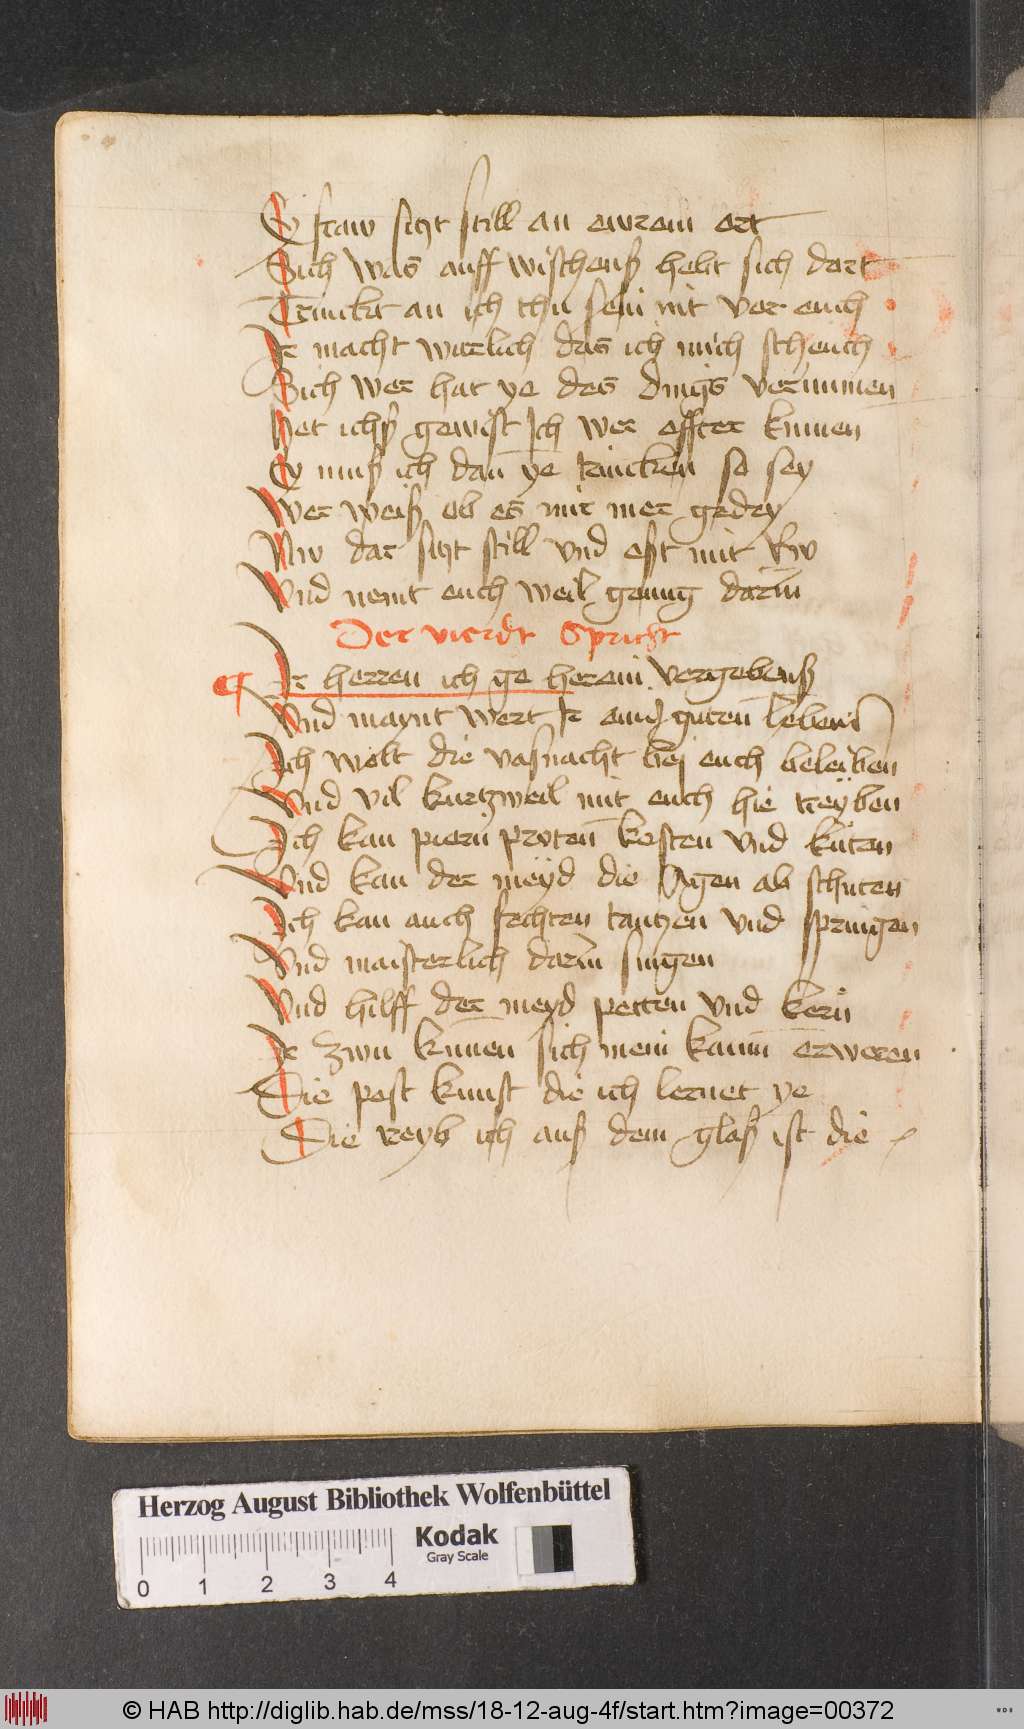 Ey fraw sitzt still an ewrem ort
Sich was auff wischenß hebt sich dort
Trinckt an ich thu sein nit vor euch
Ir macht warlich das ich mich scheuch
Sich wer hat ye des dings vernumen
Het ichß gewist Ich wer offter kumen
Ey muß ich dan ye trincken so sey
Wer weiß ob es mir mer gedey
Nw dar sitzt still vnd est mit Rw
Vnd nemt euch weil genug darzu
Der vierdt Spricht
Ir herren ich ge herein vergebenß
Vnd maynt wert Ir guten lebens
Ich wolt die vasnacht bej euch beleiben
Vnd vil kurtzweil mit euch hie treyben
Ich kan piern proten kesten vnd kuten
Vnd kan der meyd die Agen ab schuten
Ich kan auch fechten tantzen vnd springen
Vnd maisterlich darzu singen
Vnd hilff der meyd petten vnd kern
Ir zwu kunnen sich mein kaum erweren
Die pest kunst die ich lernet ye
Die treyb ich auß dem glaß ist die
Herzog August Bibliothek Wolfenbüttel
Kodak
Gray Scale
0 1 2 3 4
© HAB http://diglib.hab.de/mss/18-12-aug-4f/start.htm?image=00372